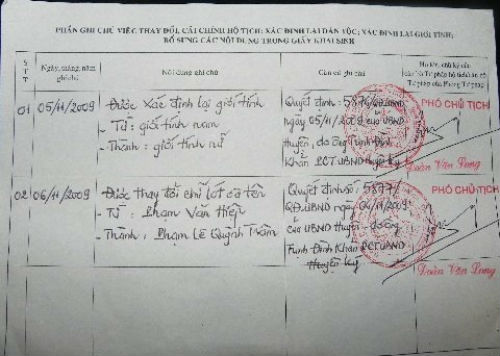 PHẦN GHI CHÚ VIỆC THAY ĐỔI, CẢI CHÍNH HỘ TỊCH; XÁC ĐỊNH LẠI DÂN TỘC; XÁC ĐỊNH LẠI GIỚI TÍNH;
BỔ SUNG CÁC NỘI DUNG TRONG GIẤY KHAI SINH
STT
Ngày, tháng, năm
ghi chú
Nội dung ghi chú
Căn cứ ghi chú
Họ tên, chữ ký của
01 05/11/2009
Được xác định lại giới tính
- Từ: giới tính nam
- Thành: giới tính nữ
Quyết định: 5876/QĐ.UBND
ngày 05/11/2009 của UBND
huyện, do ông Trịnh Đình
Khấn PCT UBND huyện ký
PHÓ CHỦ TỊCH
Đoàn Văn Long
02 06/11/2009
Được thay đổi chữ lót và tên
- Từ: Phạm Văn Hiệp
- Thành: Phạm Lê Quỳnh Trâm
Quyết định số: 5877/
QĐ.UBND ngày 04/11/2009
của UBND huyện - do ông
Trịnh Đình Khấn PCT UBND
Huyện ký
PHÓ CHỦ TỊCH
Đoàn Văn Long